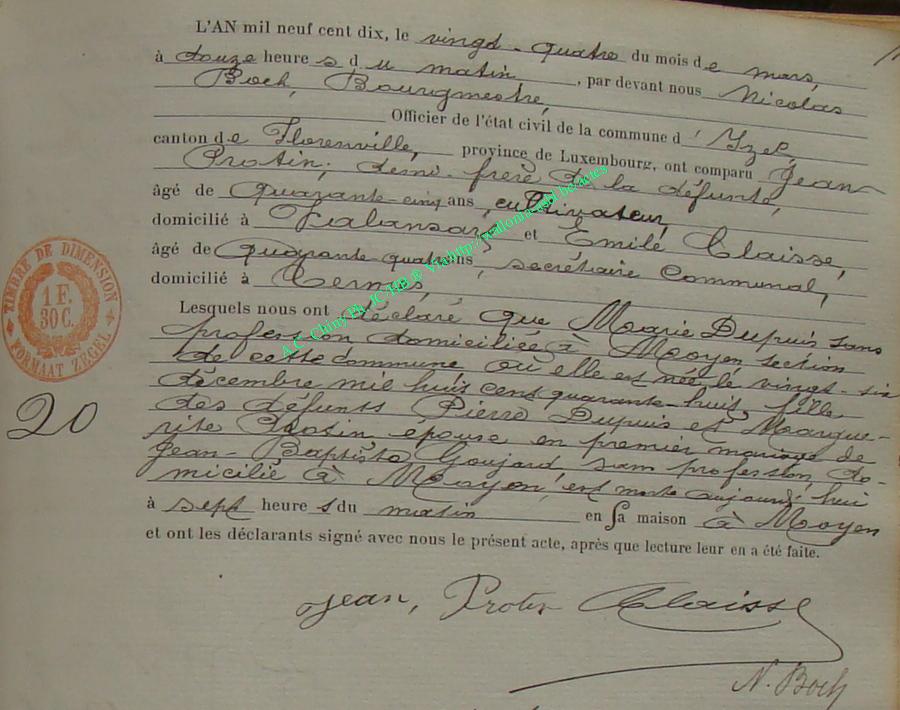 L'AN mil neuf cent dix, le vingt-quatre du mois de mars,
à douze heures du matin, par devant nous Nicolas
Boch, Bourgmestre,
Officier de l'état civil de la commune d'Izel,
canton de Florenville, province de Luxembourg, ont comparu Jean
Protin, demi-frère de la défunte,
âgé de quarante-cinq ans, cultivateur,
domicilié à et Emile Claisse,
âgé de quarante-quatre ans, secrétaire communal,
domicilié à Termes,
Lesquels nous ont déclaré que Marie Dupuis sans
profession domiciliée à Moyen, section
de cette commune, où elle est née, le vingt-six
décembre mil huit cent quarante-huit, fille
des défunts Pierre Dupuis et Margue-
rite Protin, épouse en premier mariage de
Jean-Baptiste Goujard, sans profession, do-
micilié à Moyen, est morte aujourd'hui
à sept heures du matin en sa maison à Moyen
et ont les déclarants signé avec nous le présent acte, après que lecture leur en a été faite.
Jean, Protin Claisse
N. Boch
TIMBRE DE DIMENSION
1 F.
30 C.
FORMAAT ZEGEL
20